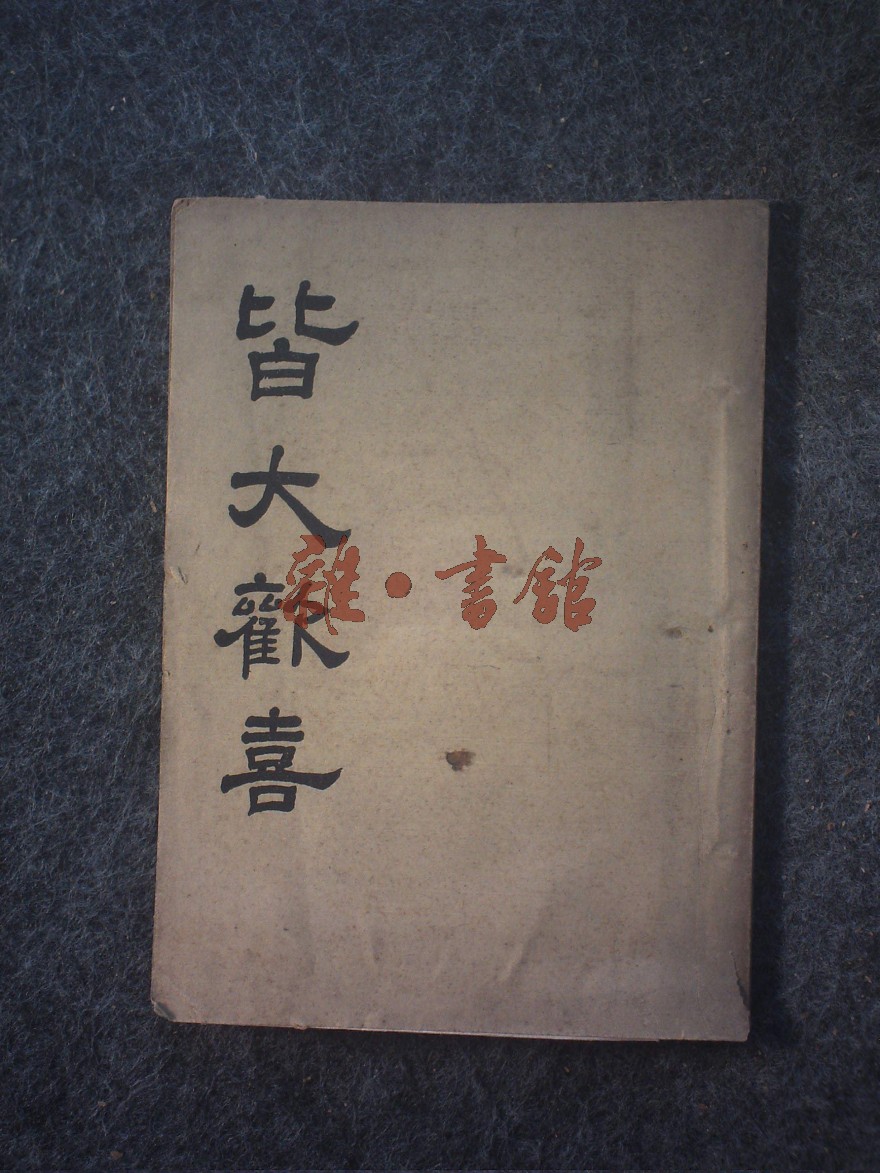 皆大歡喜
雜·書館